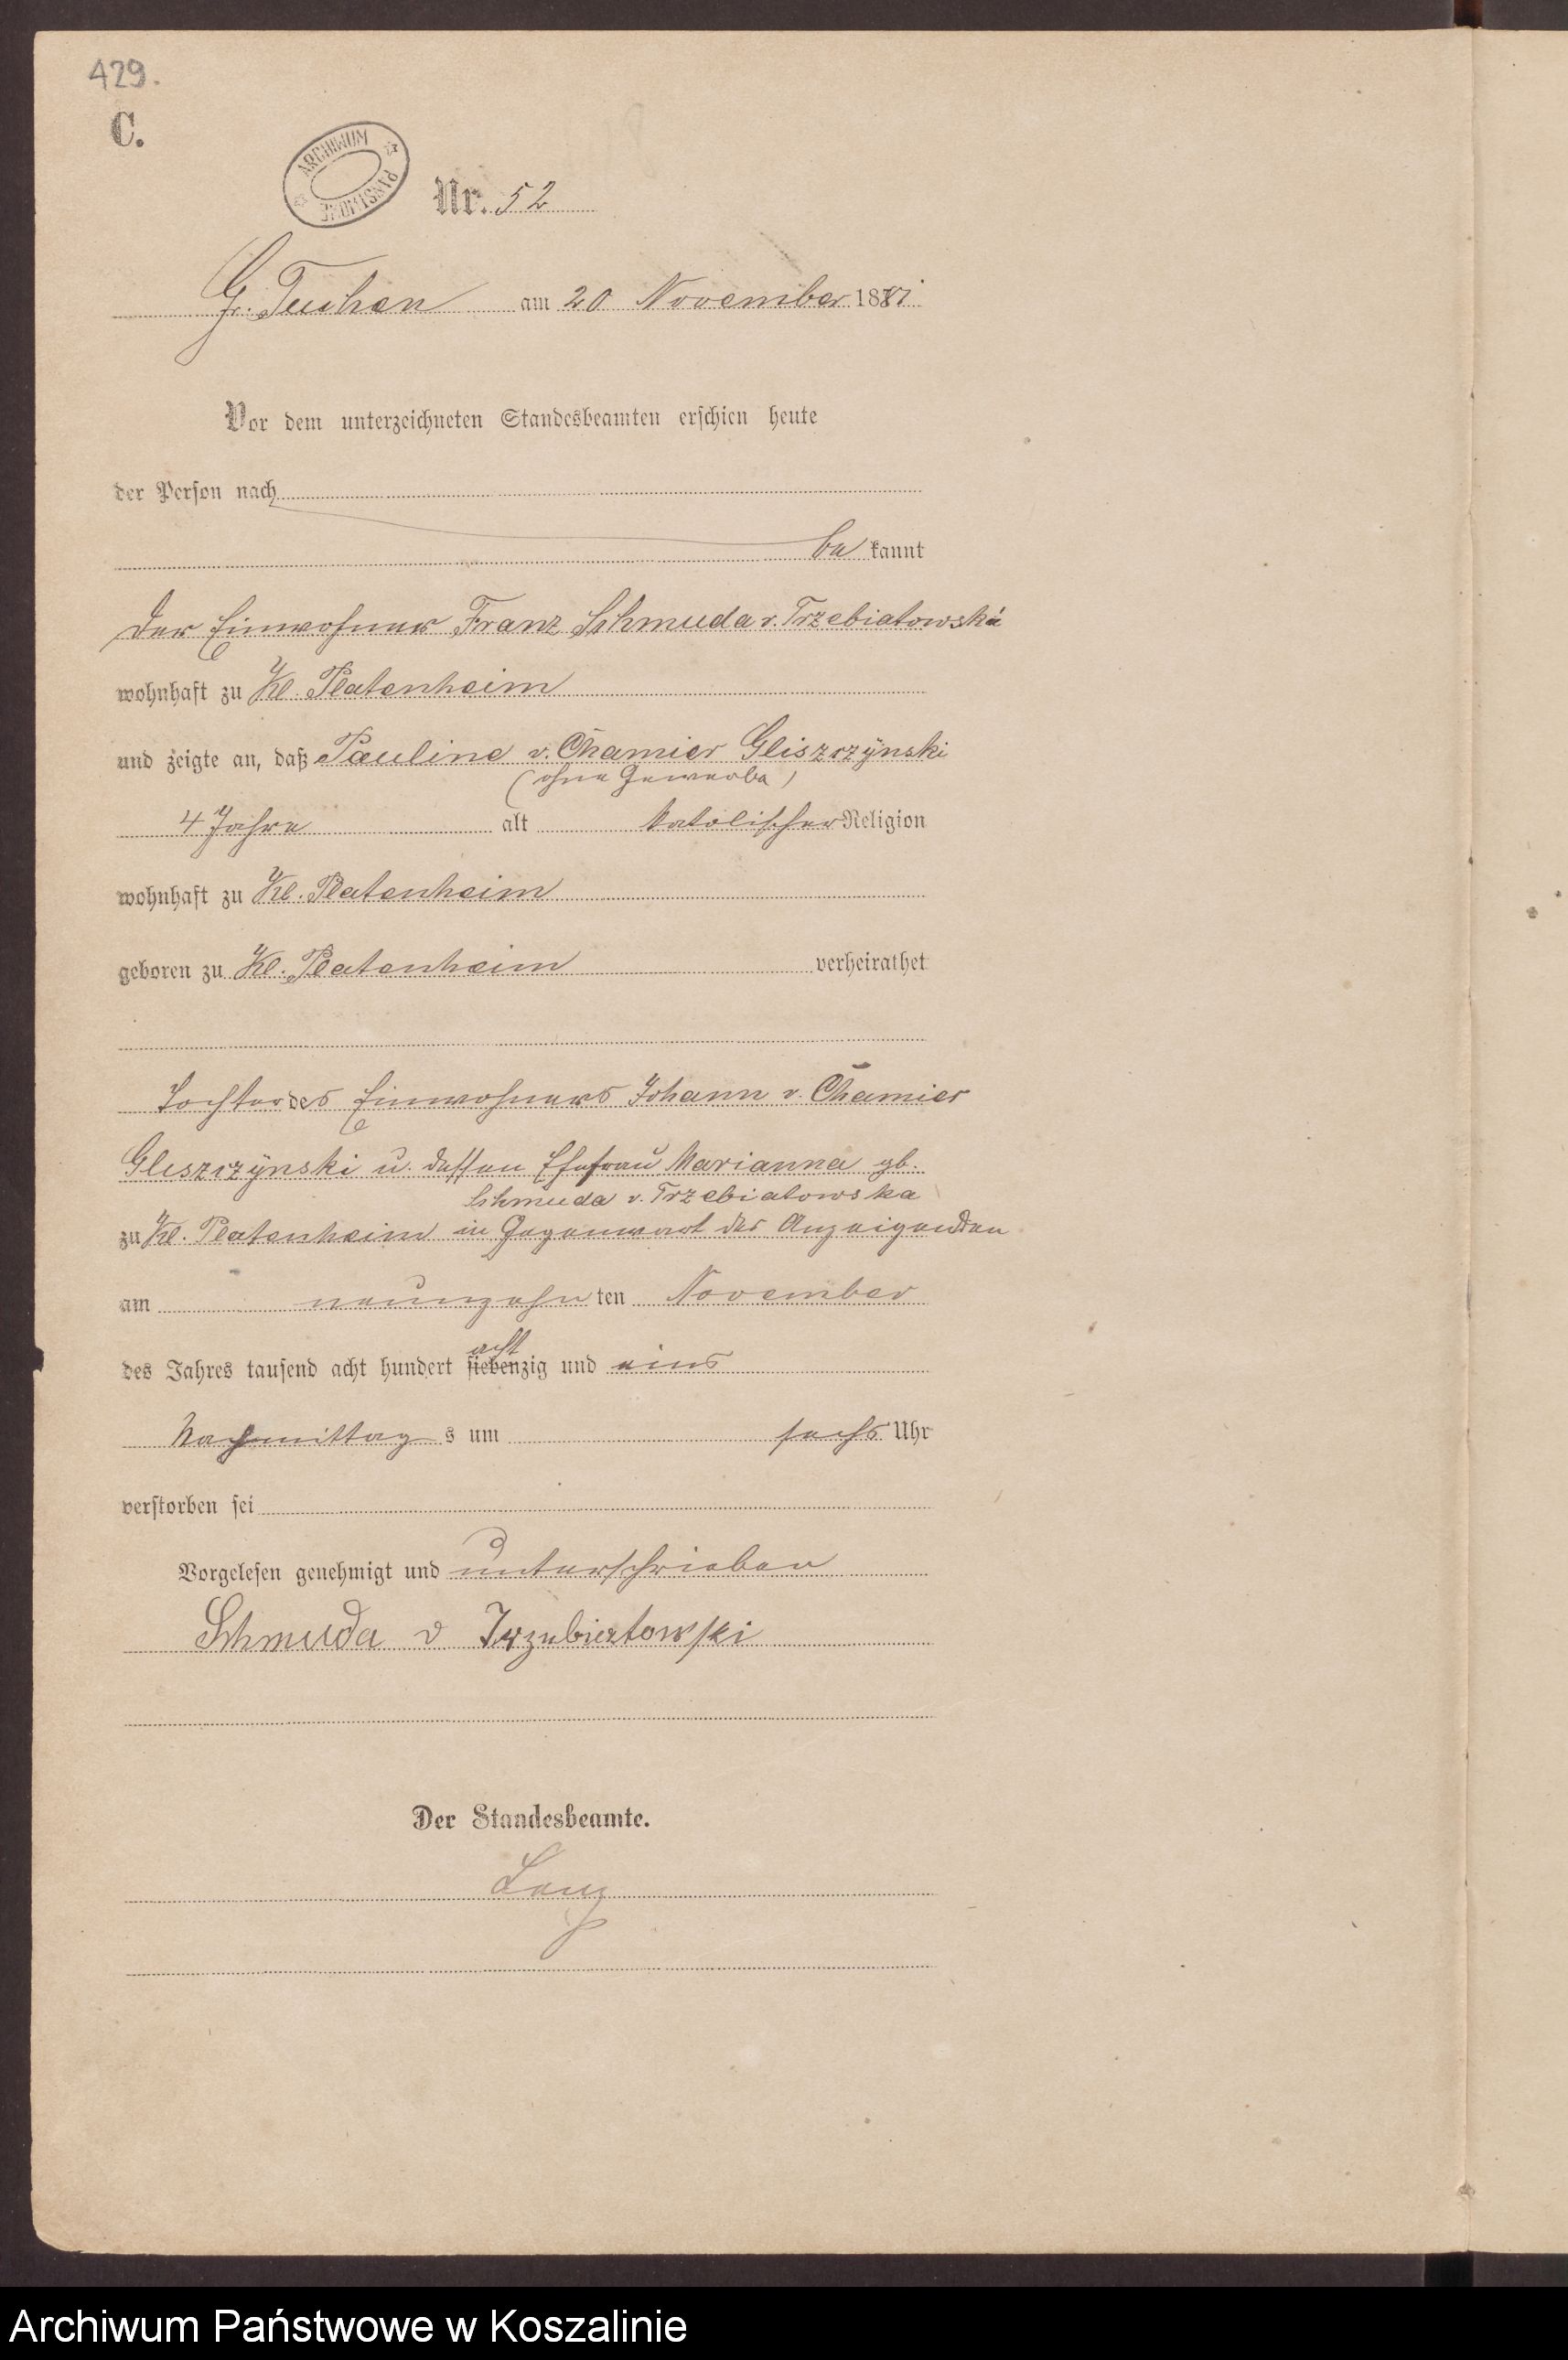 429.
C.
ARCHIWUM PAŃSTWOWE
Nr. 52
Gr. Tuchen am 20 November 1881
Vor dem unterzeichneten Standesbeamten erschien heute
der Person nach
be kannt
der Einwohner Franz Schmuda v. Trzebiatowski
wohnhaft zu Kl. Platenheim
und zeigte an, daß Pauline v. Chamier Gliszczÿnski
(ohne Gewerbe)
4 Jahre alt katolischer Religion
wohnhaft zu Kl. Platenheim
geboren zu Kl. Platenheim verheirathet
Tochter des Einwohners Johann v. Chamier
Gliszczÿnski u. dessen Ehefrau Marianna gb.
Schmuda v. Trzebiatowska
zu Kl. Platenheim in Gegenwart des Anzeigenden
am neunzehn ten November
acht
des Jahres tausend acht hundert siebenzig und eins
Nachmittag s um sechs Uhr
verstorben sei
Vorgelesen genehmigt und unterschrieben
Schmuda v Trzebiatowski
Der Standesbeamte.
Archiwum Państwowe w Koszalinie